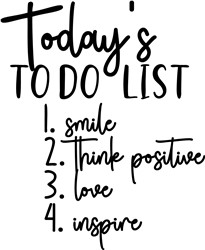 Today's
TO DO LIST
1. smile
2. think positive
3. love
4. inspire